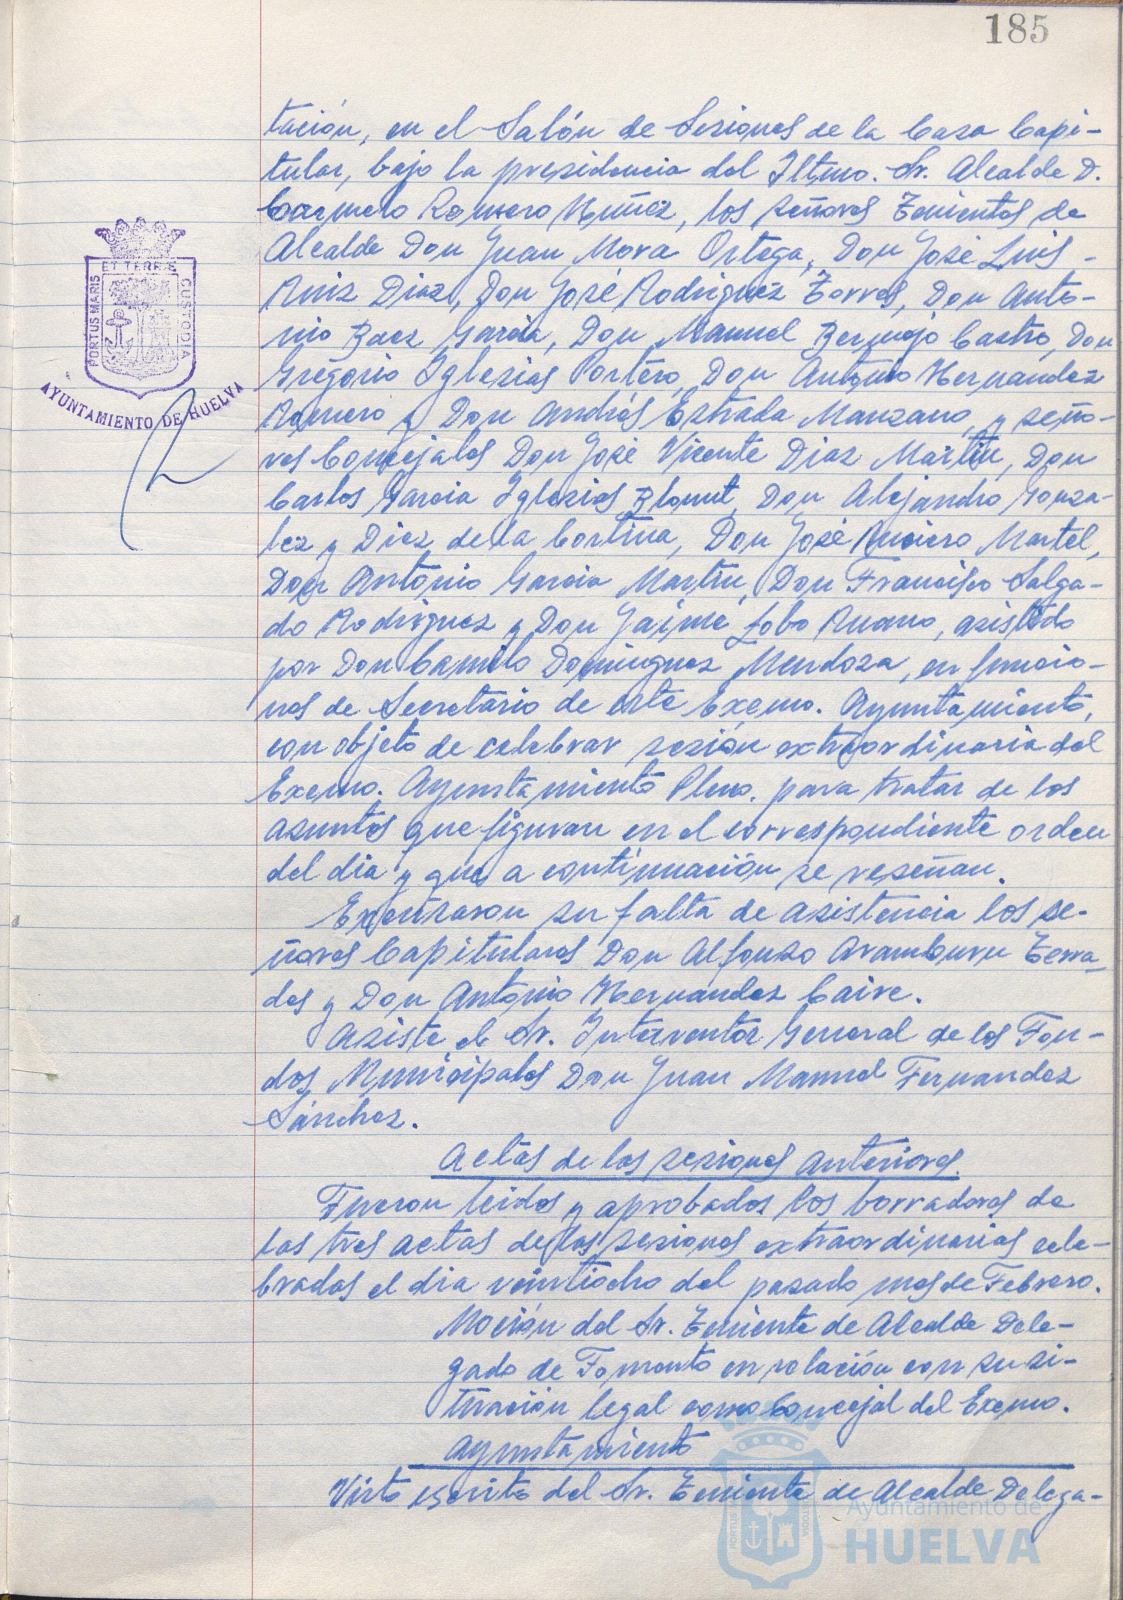 185
tación, en el Salón de Sesiones de la Casa Capi-
tular, bajo la presidencia del Iltmo. Sr. Alcalde D.
Carmelo Romero Núñez, los señores Tenientes de
Alcalde Don Juan Mora Ortega, Don José Luis -
Ruiz Diaz, Don José Rodriguez Torres, Don Anto-
nio Baez Garcia, Don Manuel Bermejo Castro, Don
Gregorio Iglesias Portero, Don Antonio Hernandez
Romero y Don Andrés Estrada Manzano, y seño-
res Concejales Don José Vicente Diaz Martin, Don
Carlos Garcia Iglesias Blount, Don Alejandro Gonza-
lez y Diez de la Cortina, Don José Ruciero Martel,
Don Antonio Garcia Martin, Don Francisco Salga-
do Rodriguez y Don Jaime Lobo Ruano, asistido
por Don Camilo Dominguez Mendoza, en funcio-
nes de Secretario de este Excmo. Ayuntamiento,
con objeto de celebrar sesión extraordinaria del
Excmo. Ayuntamiento Pleno. para tratar de los
asuntos que figuran en el correspondiente orden
del dia y que a continuación se reseñan.
Excusaron su falta de asistencia los se-
ñores Capitulares Don Alfonso Aramburu Terra-
des y Don Antonio Hernández Caire.
Asiste el Sr. Interventor General de los Fon-
dos Municipales Don Juan Manuel Fernandez
Sánchez.
Actas de las sesiones anteriores.
Fueron leidos y aprobados los borradores de
las tres actas de las sesiones extraordinarias cele-
bradas el dia veintiocho del pasado mes de Febrero.
Moción del Sr. Teniente de Alcalde Dele-
gado de Fomento en relación con su si-
tuación legal como Concejal del Excmo.
Ayuntamiento
Visto escrito del Sr. Teniente de Alcalde Delega-
PORTUS MARIS ET TERRE CUSTODIA
AYUNTAMIENTO DE HUELVA
Ayuntamiento de
HUELVA